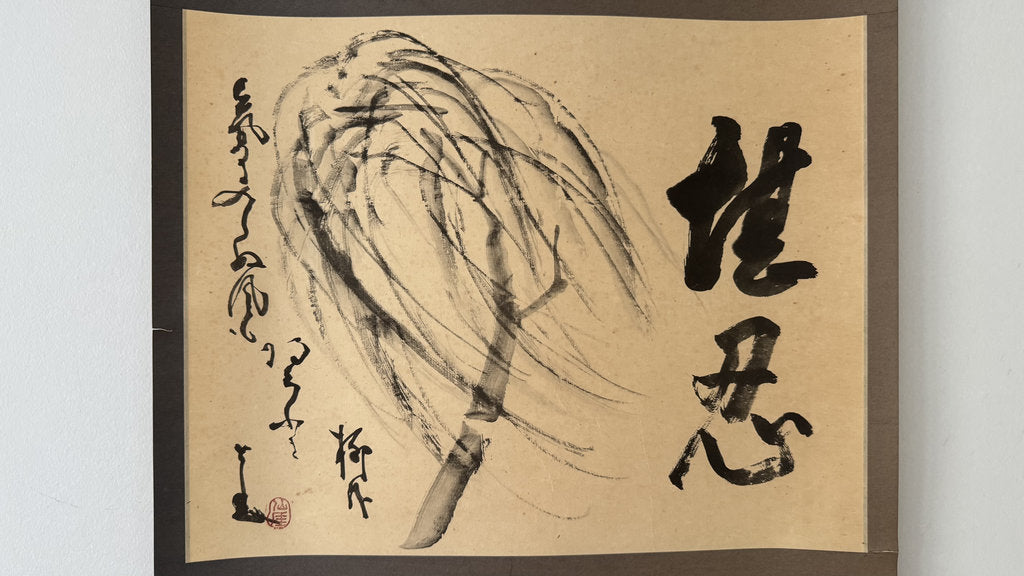 堪忍
気に入らぬ風も
あろふに
柳